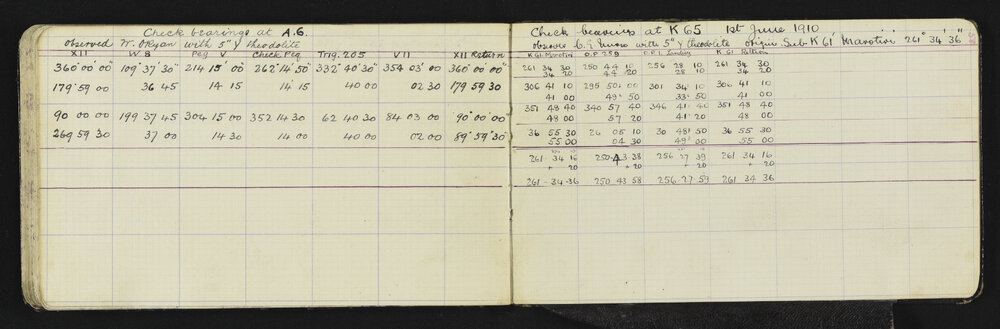 Check bearings at A.6.
observed W. O'Ryan with 5" Y theodolite
XII W 8 Peg V Check Peg Trig. 205 VII XII Return
360° 00' 00" 109° 37' 30" 214° 15' 00" 262° 14' 50" 332° 40' 30" 354 03' 00 360° 00' 00"
179° 59 00 36 45 14 15 14 15 40 00 02 30 179 59 30
90 00 00 199 37 45 304 15 00 352 14 30 62 40 30 84 03 00 90° 00' 00"
269 59 30 37 00 14 30 14 00 40 00 02 00 89° 59' 30"
Check bearings at K 65 1st June 1910
observer with 5" Y theodolite origin Sub K 61 Marotiri 261° 34' 36"
K 61 Marotiri O.P 259 K 61
261 34 30 250 44 10 256 28 10 261 34 30
34 20 44 20 28 10 34 20
306 41 10 295 50 00 301 34 10 306 41 10
41 00 49 50 33 50 41 00
351 48 40 340 57 40 346 41 40 351 48 40
48 00 57 20 41 20 48 00
36 55 30 26 05 10 30 48 50 36 55 30
55 00 04 30 49 00 55 00
261 34 16 250 43 38 256 27 39 261 34 16
+ 20 + 20 + 20 + 20
261 - 34 - 36 250 43 58 256 - 27 - 59 261 34 36